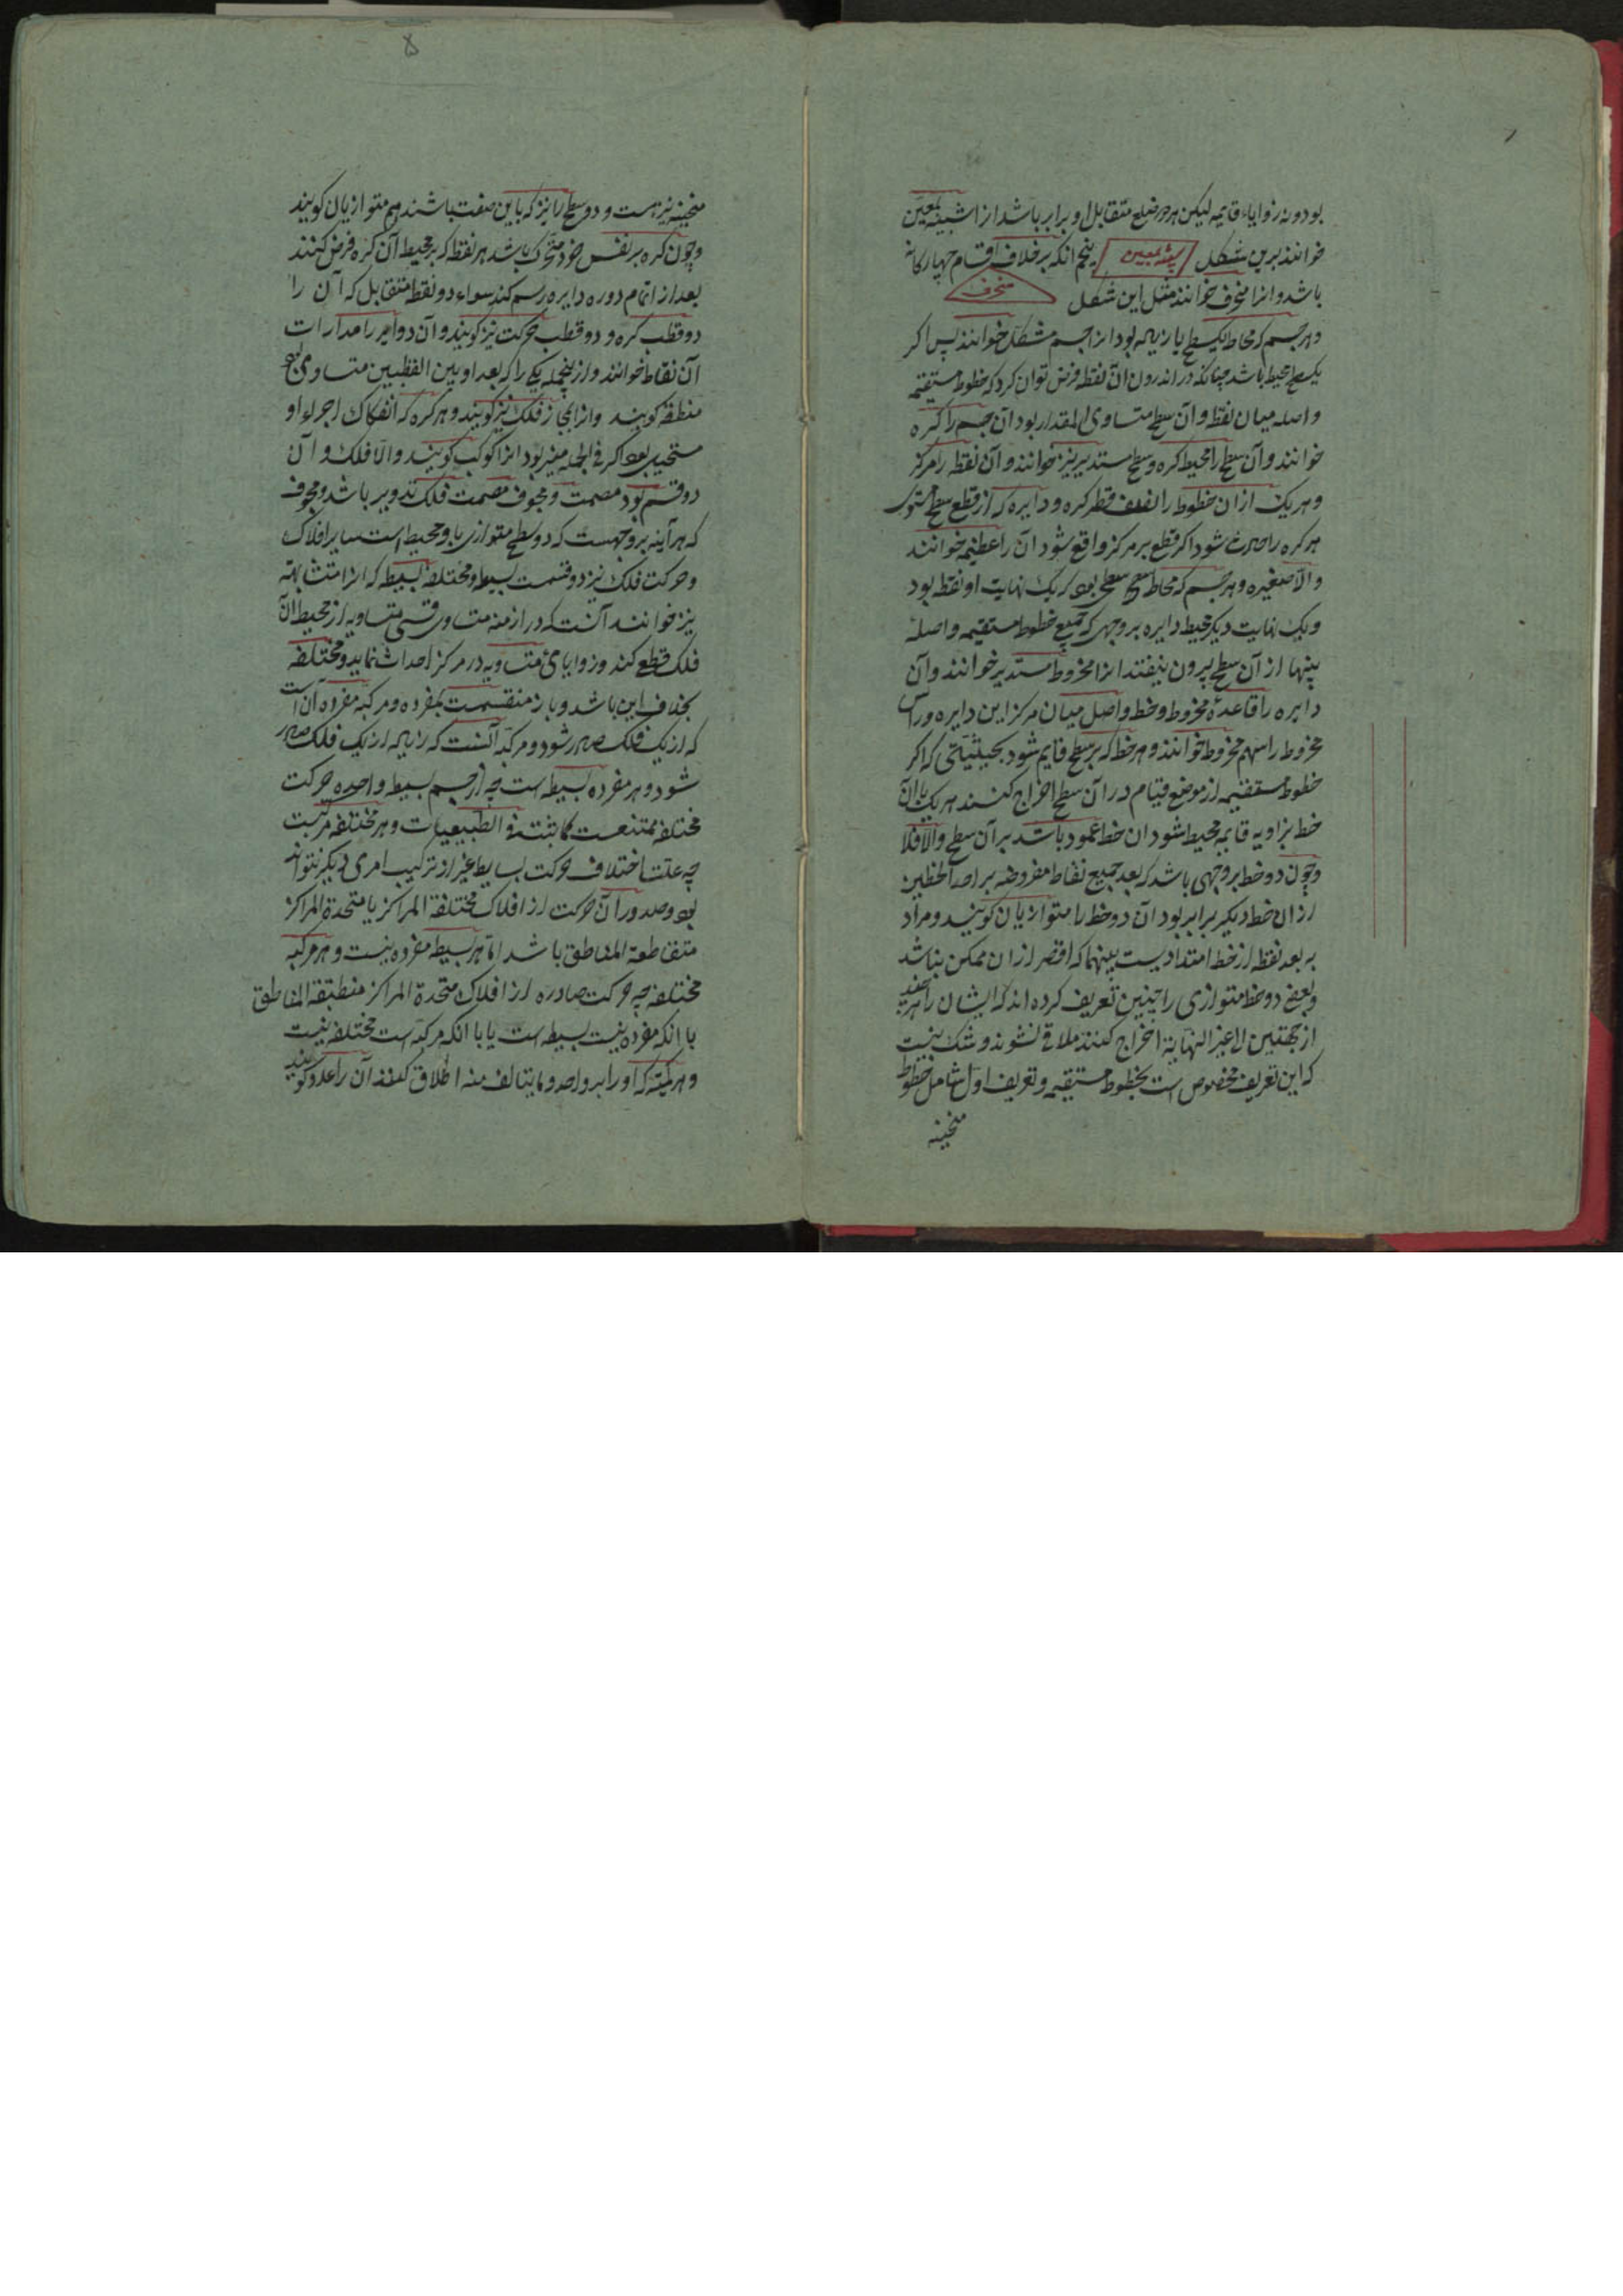 بود و نه زوایاء قایمه لیکن هر دو ضلع متقابل او برابر باشد انرا شبیه بمعین
خوانند برین شکل شبیه بمعین پنجم انکه برخلاف اقسام چهارکانه
باشد و انرا منحرف خوانند مثل این شکل منحرف
و هر جسم که محاط بیکسطح یا زیاده بود انرا جسم مشکل خوانند پس اکر
یک سطح محیط باشد چنانکه در اندرون آن نقطه فرض توان کرد که خطوط مستقیمه
واصله میان نقطه و آن سطح متساوی المقدار بود آن جسم را کره
خوانند و آن سطح را محیط کره و سطح مستدیر نیز خوانند و آن نقطه را مرکز
و هر یک ازان خطوط را نصف قطر کره و دایره که از قطع سطح مستوی
هر کره را حادث شود اکر قطع بر مرکز واقع شود آن را عظیمه خوانند
والا صغیره و هر جسم که محاط سطحی بود که یک نهایت او نقطه بود
و یک نهایت دیکر محیط دایره بر وجهی که جمیع خطوط مستقیمه واصله
بینهما از آن سطح بیرون نیفتند انرا مخروط مستدیر خوانند و آن
دایره را قاعدهٔ مخروط و خط واصل میان مرکز این دایره و راس
مخروط را سهم مخروط خوانند و هر خط که بر سطح قایم شود بحیثیتی که اکر
خطوط مستقیمه از موضع قیام در آن سطح اخراج کنند هر یک با آن
خط بزاویه قایمه محیط شود ان خط عمود باشد بر آن سطح والا فلا
و چون دو خط بر وجهی باشد که بعد جمیع نقاط مفروضه بر احد الخطین
ازان خط دیکر برابر بود آن دو خط را متوازیان کویند و مراد
به بعد نقطه از خط امتدادیست بینهما که اقصر ازان ممکن نباشد
و بعضی دو خط متوازی را چنین تعریف کرده اند که ایشان را هر چند
از جهتین الی غیر النهایة اخراج کنند ملاقی نشوند و شک نیست
که این تعریف مخصوص است بخطوط مستقیمه و تعریف اول شامل خطوط
منحنیه
۵
منحنیه نیز هست و دو سطح را نیز که باین صفت باشند هم متوازیان کویند
و چون کره بر نفس خود متحرک باشد هر نقطه که بر محیط آن کره فرض کنند
بعد از اتمام دوره دایره رسم کند سواء دو نقطه متقابل که آن را
دو قطب کره و دو قطب حرکت نیز کویند و آن دوایر را مدارات
آن نقاط خوانند و ازینجمله یکی را که بعد او بین القطبین متساوی بود
منطقه کویند و انرا مجازا فلک نیز کویند و هر کره که انفکاک اجزاء او
مستحیل بود اکر فی الجمله منیر بود انرا کوکب کویند والا فلک و آن
دو قسم بود مصمت و مجوف مصمت فلک تدویر باشد و مجوف
که هر آینه بر وجهیست که دو سطح متوازی باو محیط است سایر افلاک
و حرکت فلک نیز دو قسمت بسیطه و مختلفه بسیطه که انرا متشابهه
نیز خوانند آنست که در ازمنه متساوی قسی متساویه از محیط آن
فلک قطع کند و زوایای متساویه در مرکز احداث نماید و مختلفه
بخلاف این باشد و باز منقسمست بمفرده و مرکبه مفرده آن است
که از یک فلک صادر شود و مرکبه آنست که زیاده از یک فلک صادر
شود و هر مفرده بسیطه است چه از جسم بسیط واحد حرکت
مختلفه ممتنعست کما ثبت فی الطبیعیات و هر مختلفه مرکبست
چه علت اختلاف حرکت بسایط غیر از ترکیب امری دیکر نتواند
بود و صدور آن حرکت از افلاک مختلفة المراکز یا متحدة المراکز
متقاطعة المناطق باشد اما هر بسیطه مفرده نیست و هر مرکبه
مختلفه چه حرکت صادره از افلاک متحدة المراکز منطبقة المناطق
با انکه مفرده نیست بسیطه است یا با انکه مرکبه است مختلفه نیست
و هر کمیتی که او را بر واحد و ما یتالف منه اطلاق کنند آن را عدد کویند